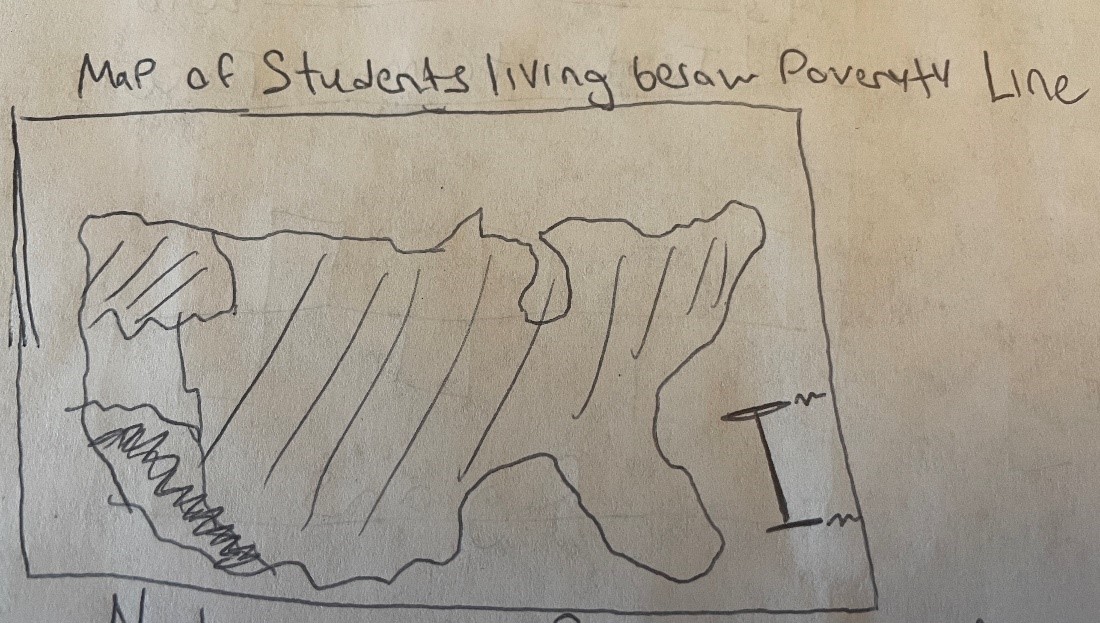 Map of Students living besaw Poveryty Line